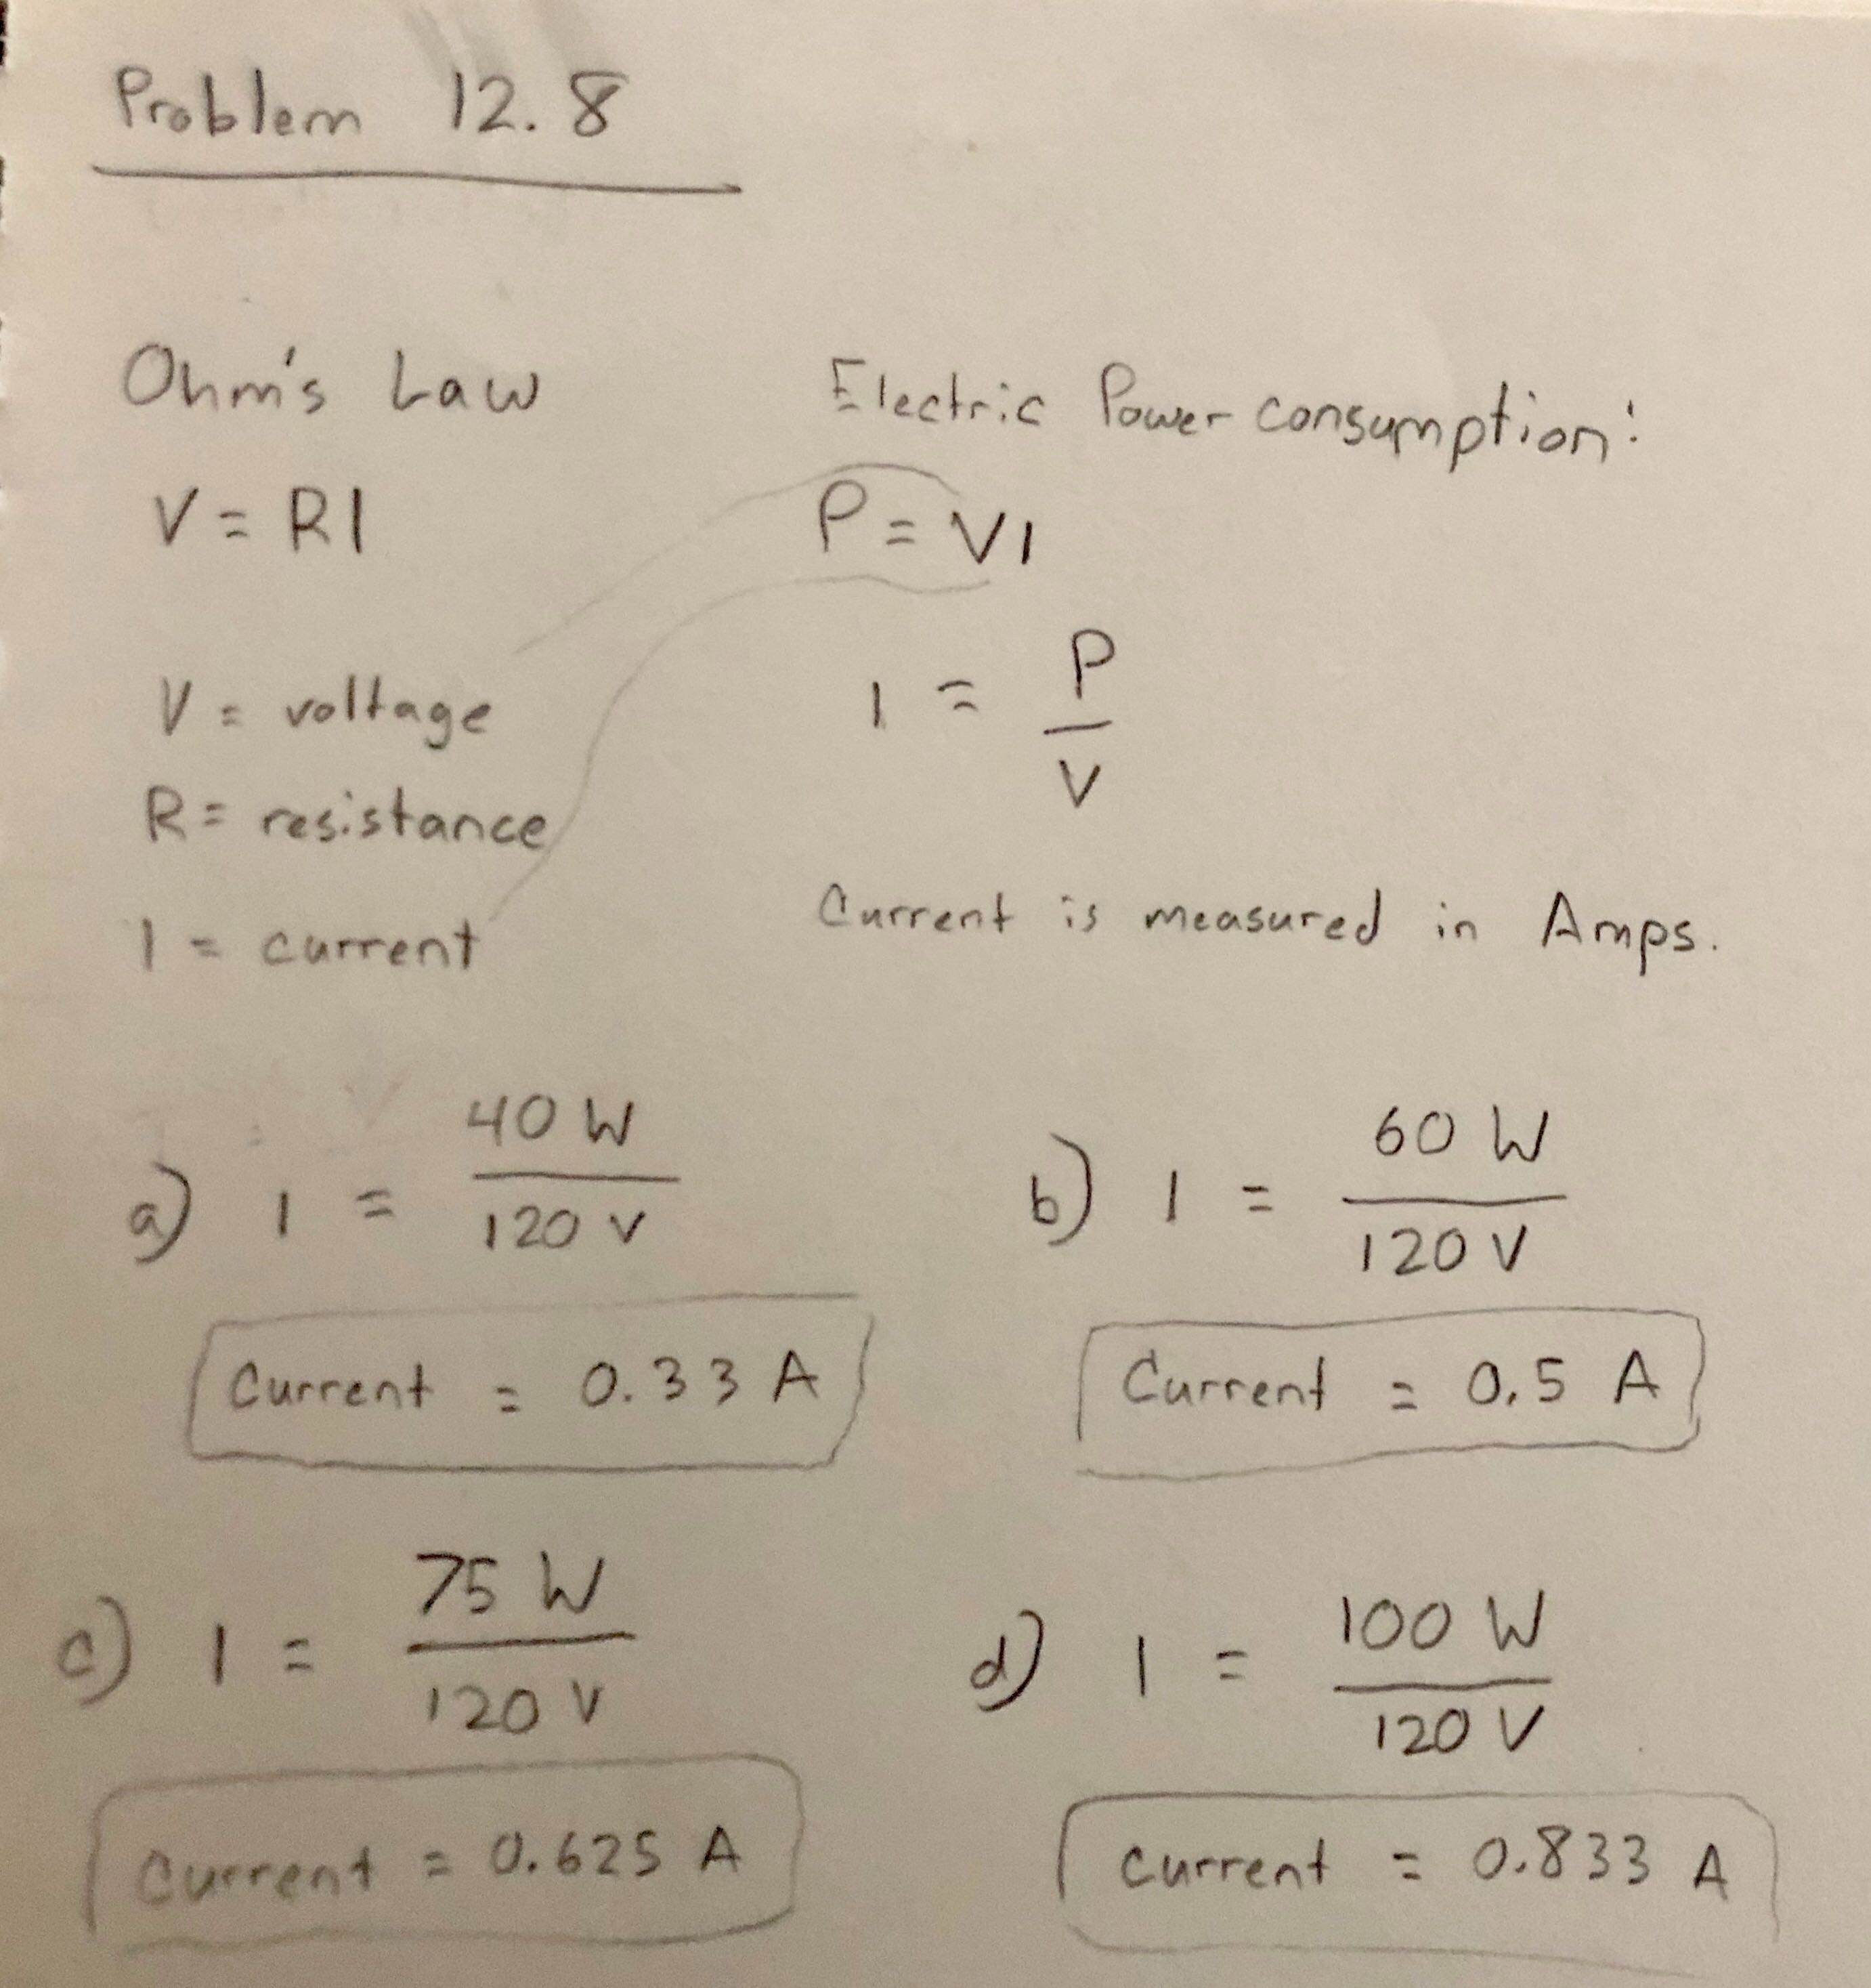 Problem 12.8
Ohm's Law
V = RI
V = voltage
R = resistance
I = current
Electric Power consumption:
P = VI
I = P
V
Current is measured in Amps.
a) I = 40 W
120 V
Current = 0.33 A
b) I = 60 W
120 V
Current = 0.5 A
c) I = 75 W
120 V
Current = 0.625 A
d) I = 100 W
120 V
Current = 0.833 A